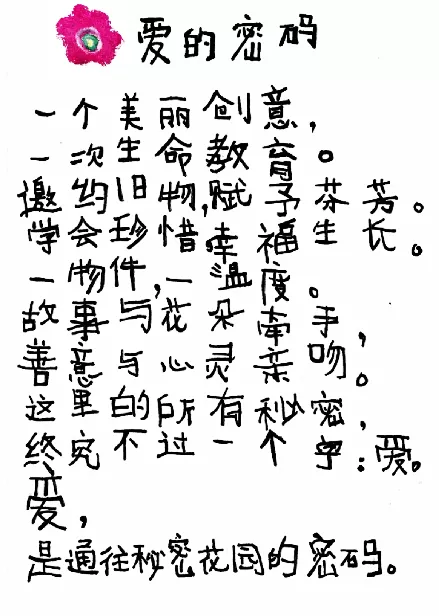 爱的密码
一个美丽创意，
一次生命教育。
邀约旧物，赋予芬芳。
学会珍惜，幸福生长。
一物件，一温度。
故事与花朵牵手，
善意与心灵亲吻。
这里的所有秘密，
终究不过一个字：爱。
爱，
是通往秘密花园的密码。